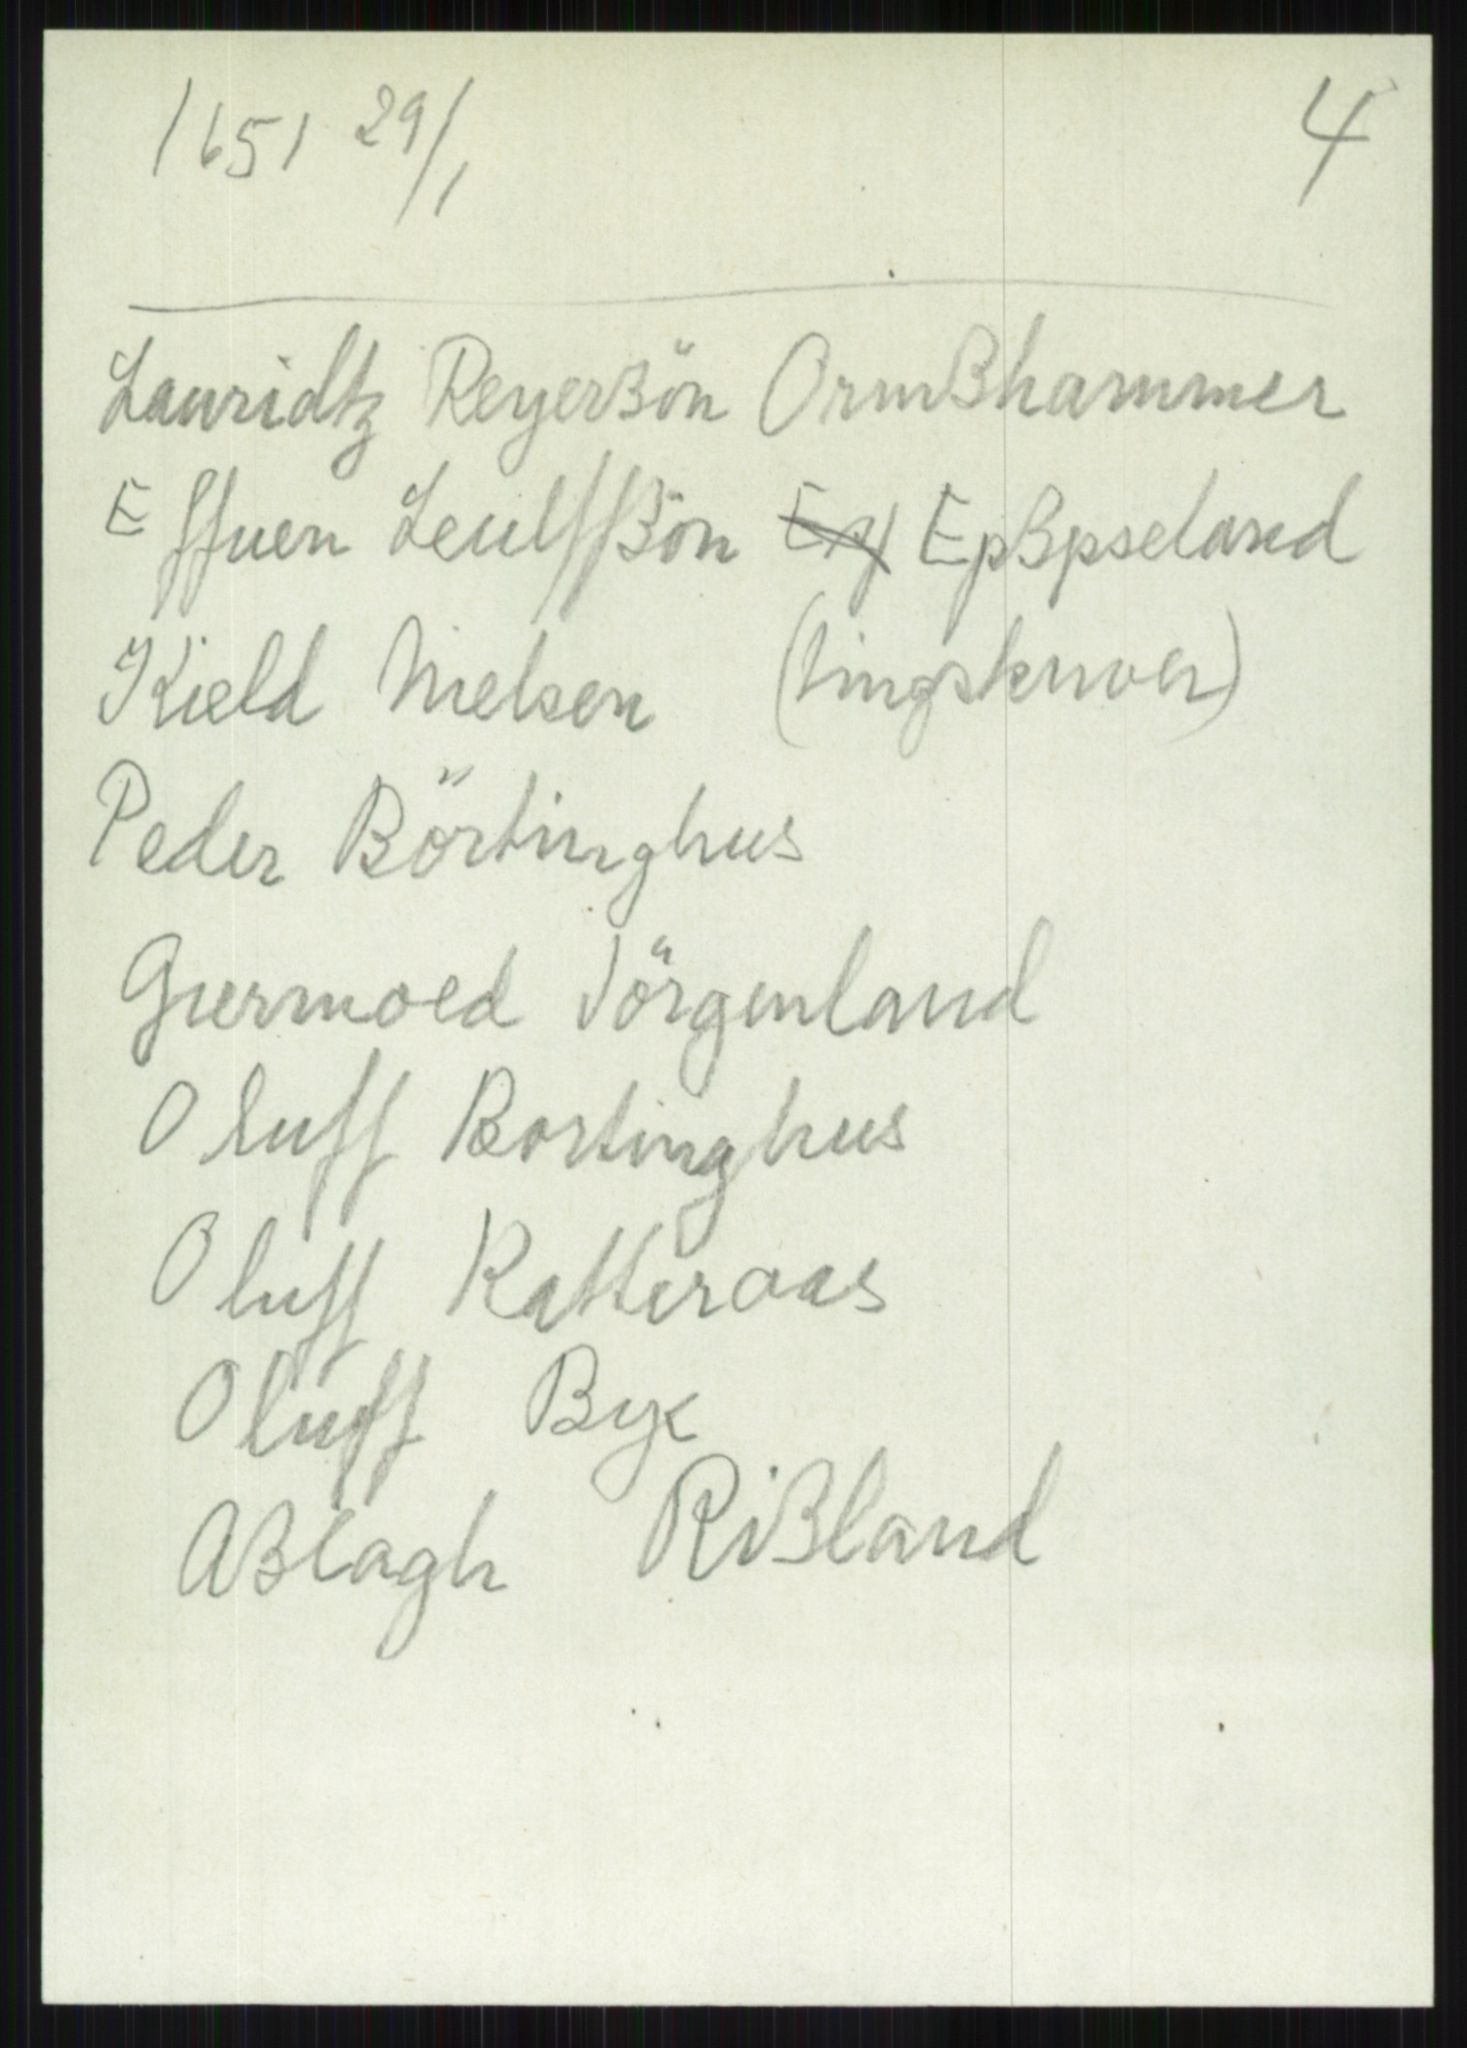 1651 29/1 4
Lauridtz Reyerßön Ormßhammer
Effuen Leulffßön Epßpseland
Kield Nielsen (tingskriver)
Peder Börtinghus
Giermoed Jörgenland
Oluff Bortinghus
Oluff Katteraas
Oluff Bye
Aßlagh Rißland